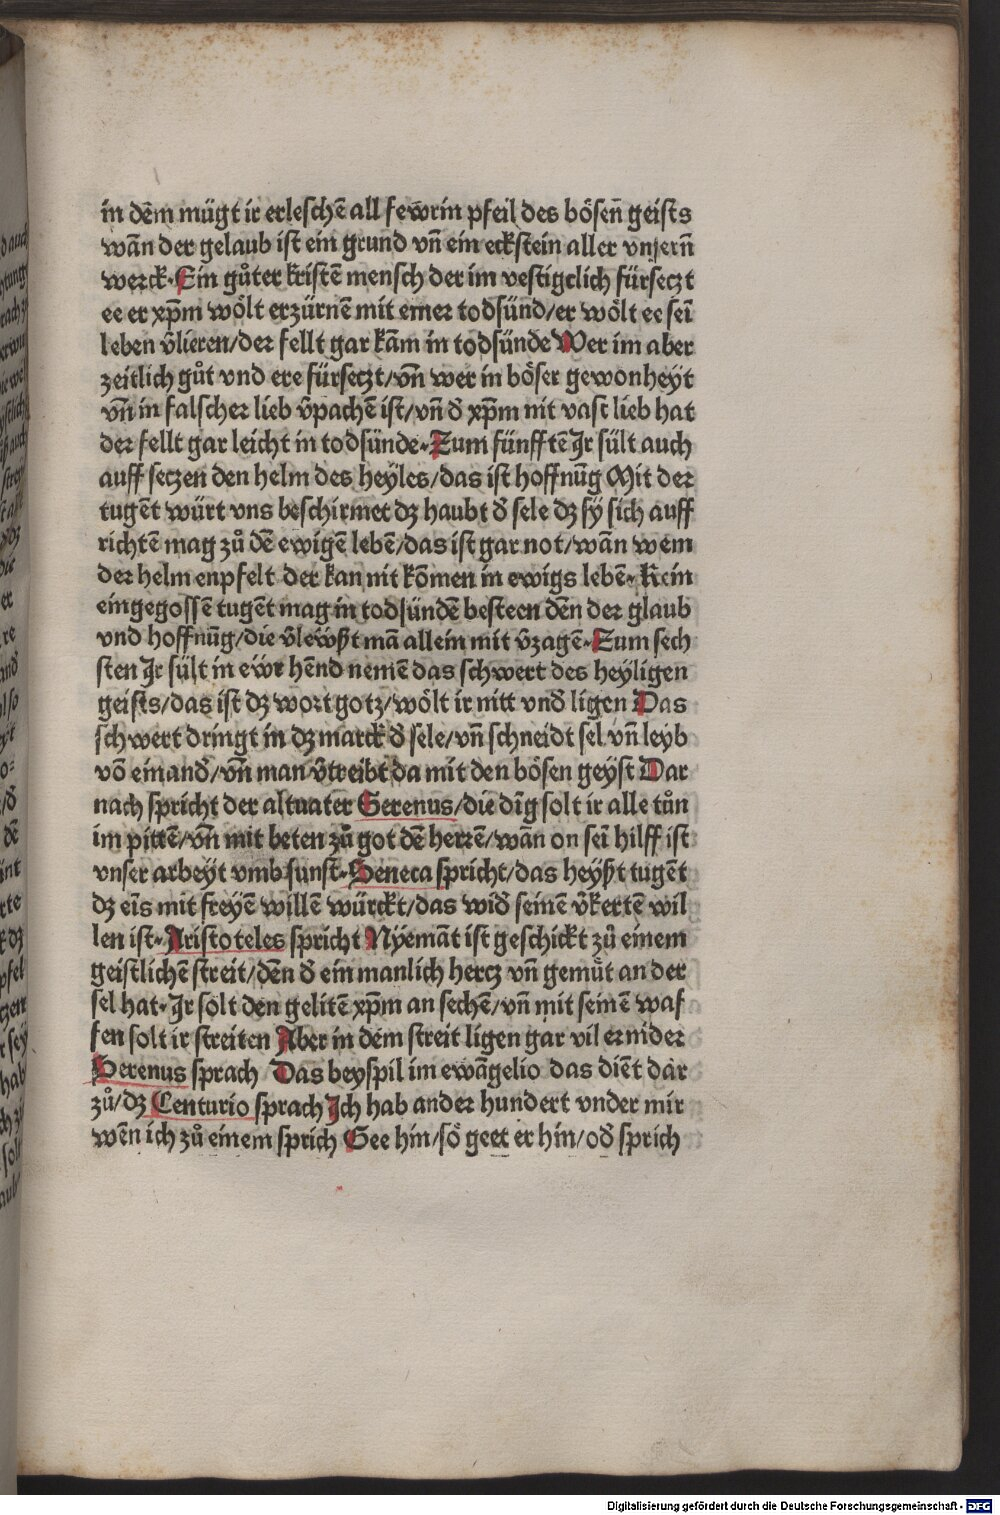 in dēm mügt ir erleschē all fewrin pfeil des bösen̄ geists
wān der gelaub ist ein grund vn̄ ein eckstein aller vnsern̄
werck· Ein gůter kristē mensch der im vestigclich fürseczt
ee er xp̄m wölt erzürnē mit einer todsünd/er wölt ee sei᷑
leben v̄lieren/der fellt gar kām in todsünde Wer im aber
zeitlich gůt vnd ere fürseczt/vn̄ wer in böser gewonheyt
vn̄ in falscher lieb v̄pachē ist/vn̄ d̄ xp̄m nit vast lieb hat
der fellt gar leicht in todsünde· Zum fünfftē Jr sült auch
auff seczen den helm des heyles/das ist hoffnūg Mit der
tugēt würt vns beschirmet dz haubt d̄ sele dz sÿ sich auff
richtē mag zů dē ewigē lebē/das ist gar not/wān wem
der helm enpfelt der kan nit kōmen in ewigs lebē· Kein
eingegossē tugēt mag in todsündē besteen dēn der glaub
vnd hoffnūg/die v̄lewßt mā allein mit v̄zagē· Zum sech
sten Jr sült in ewr hēnd nemē das schwert des heyligen
geists/das ist dz wort gotz/wölt ir nitt vnd̄ ligen Das
schwert dringt in dz marck d̄ sele/vn̄ schneidt sel vn̄ leyb
vō einand̄/vn̄ man v̄treibt da mit den bösen geyst Dar
nach spricht der altuater Serenus/die dīg solt ir alle tůn
im pittē/vn̄ mit beten zů got dē herrē/wān on sei᷑ hilff ist
vnser arbeyt vmb sunst· Seneca spricht/das heyßt tugēt
dz eīs mit freyē willē würckt/das wid̄ seinē v̄kertē wil
len ist· Aristoteles spricht Nyemāt ist geschickt zů einem
geistlichē streit/dēn d̄ ein manlich hercz vn̄ gemüt an der
sel hat· Jr solt den gelitē xp̄m an sechē/vn̄ mit seinē waf
fen solt ir streiten Aber in dem streit ligen gar vil ernider
Serenus sprach Das beyspil im ewāgelio das diēt dar
zů/dz Centurio sprach Jch hab ander hundert vnder mir
wēn ich zů einem sprich Gee hin/so geet er hin/od̄ sprich
Digitalisierung gefördert durch die Deutsche Forschungsgemeinschaft - DFG